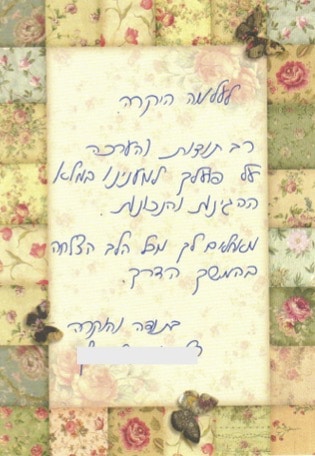 לעלמה היקרה
רב תודות והערכה
על פועלך למענינו במלא
ההגינות והנכונות
מאחלים לך מכל הלב הצלחה
בהמשך הדרך
בתודה והוקרה